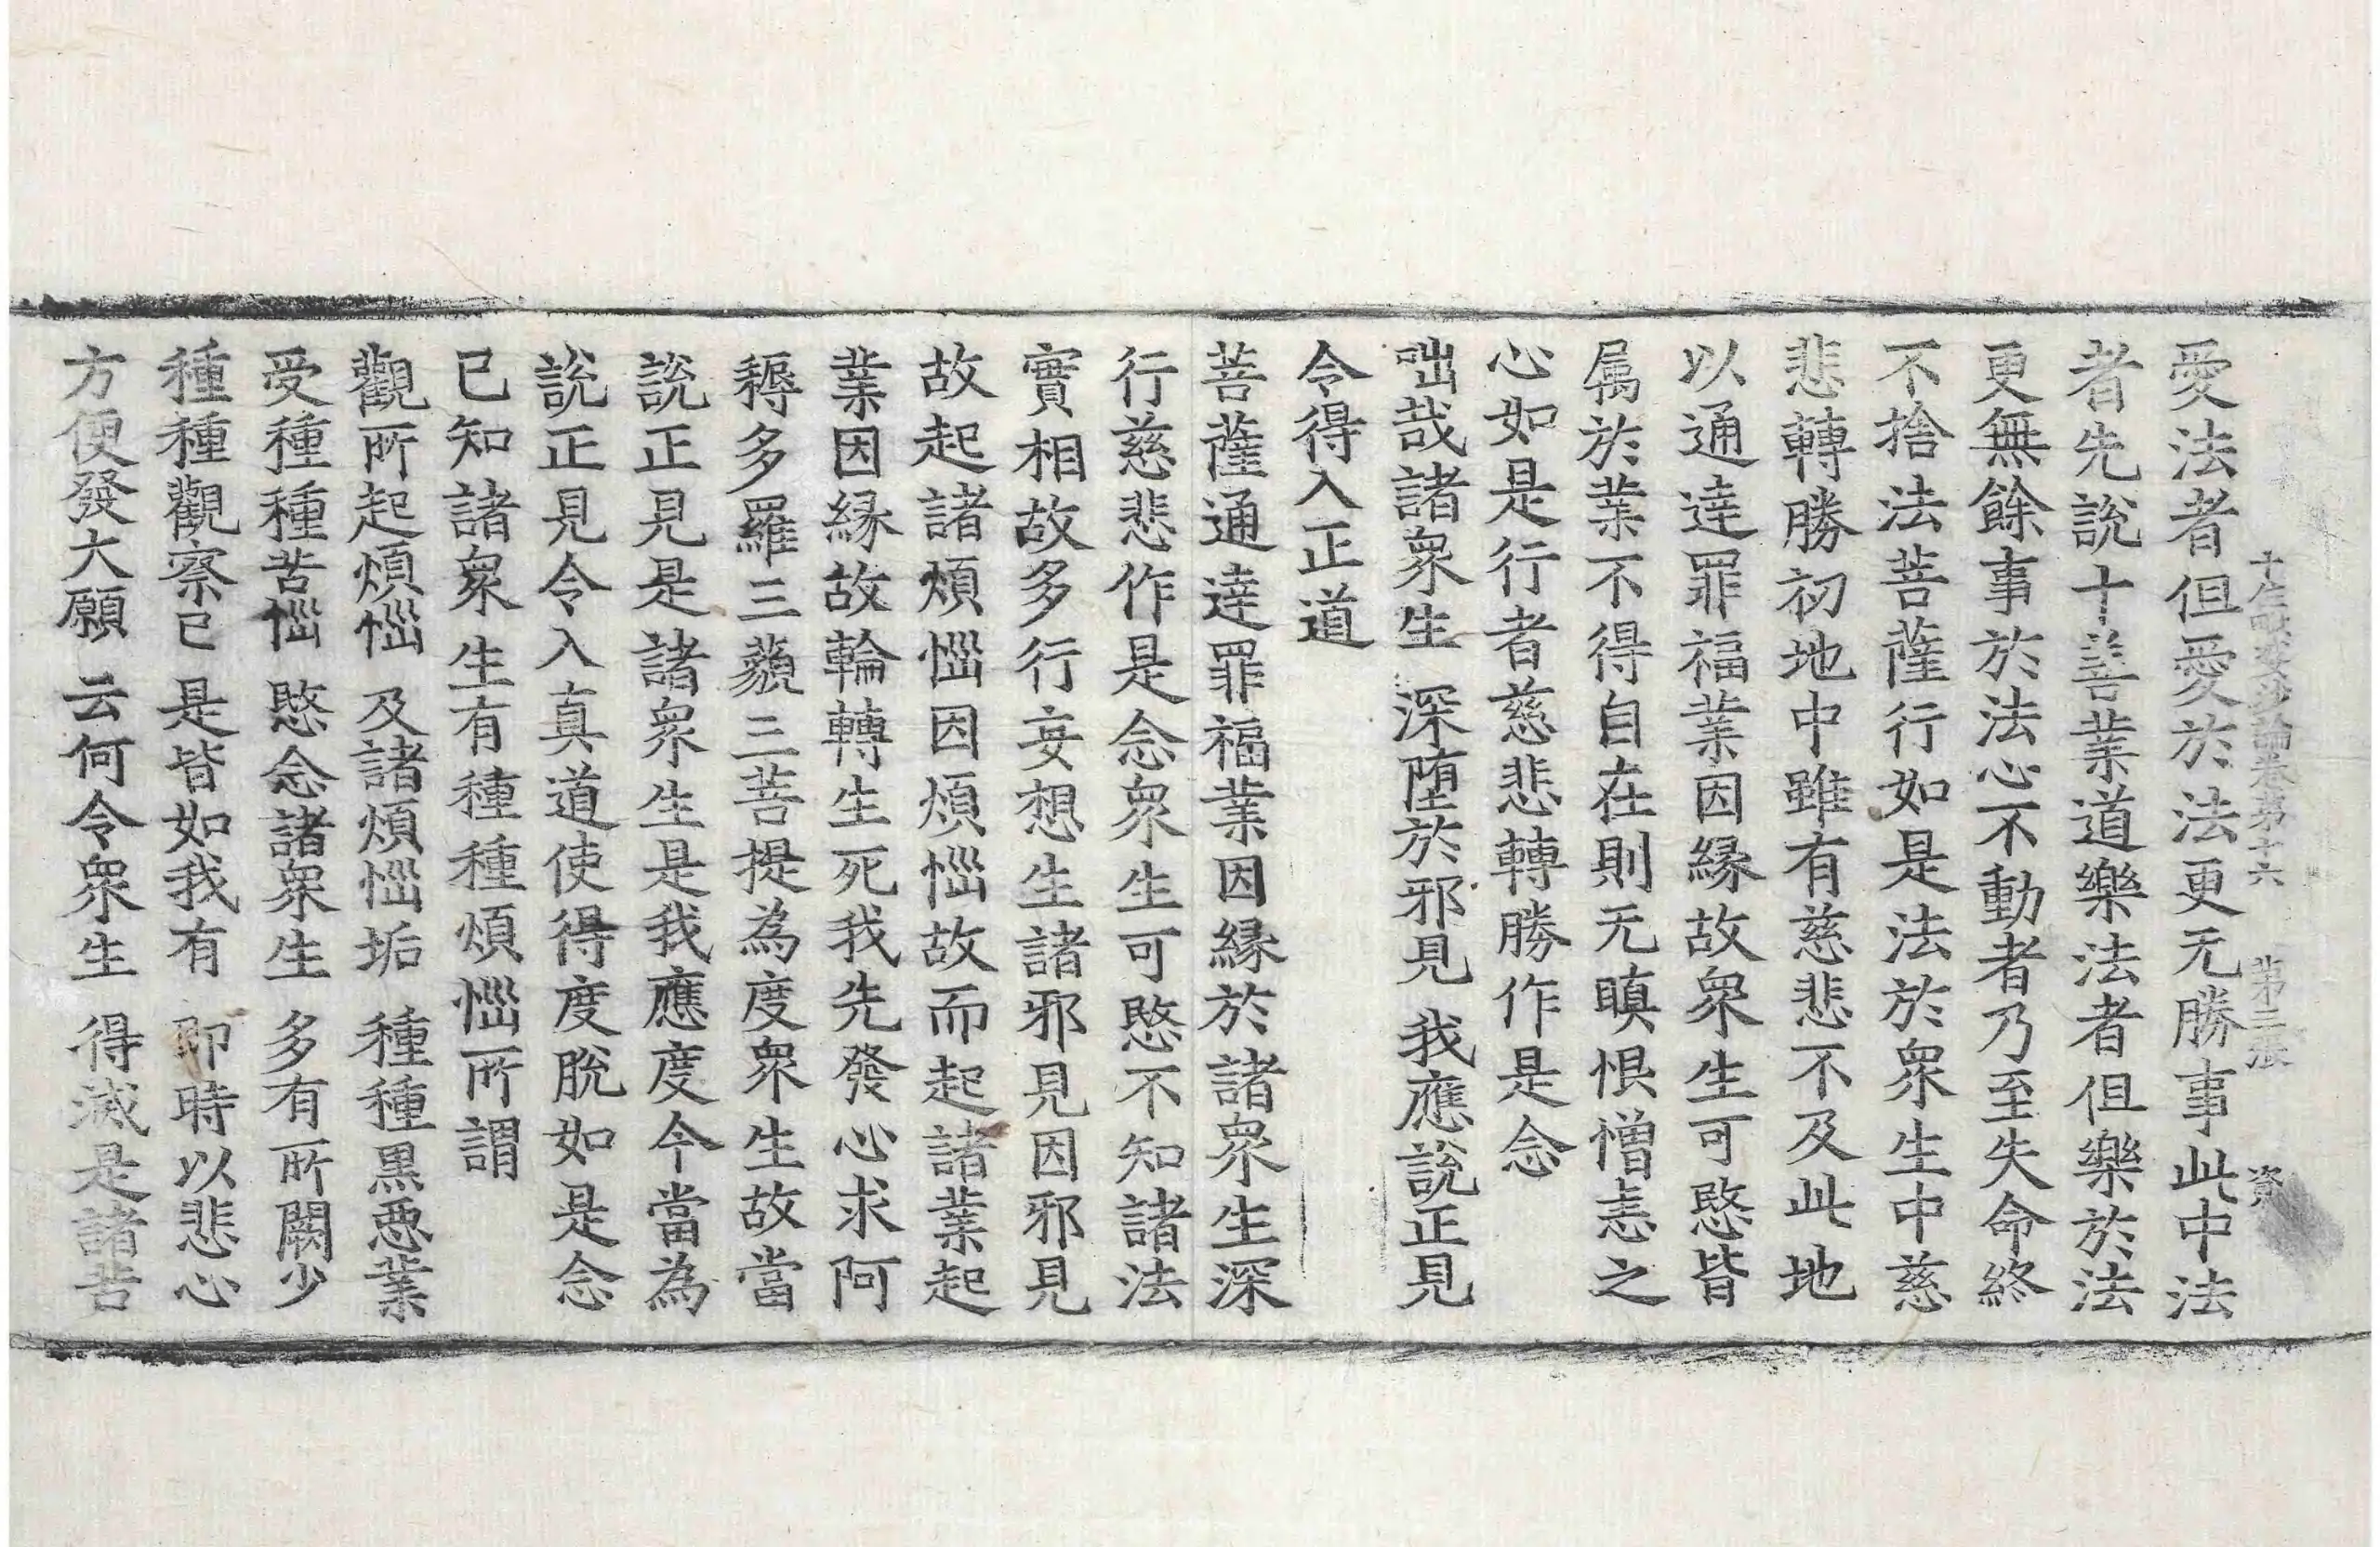 十住毗婆沙論卷第十六 第三張 資
愛法者但愛於法更无勝事此中法
者先說十善業道樂法者但樂於法
更無餘事於法心不動者乃至失命終
不捨法菩薩行如是法於衆生中慈
悲轉勝初地中雖有慈悲不及此地
以通達罪福業因緣故衆生可愍皆
属於業不得自在則无瞋恨憎恚之
心如是行者慈悲轉勝作是念
咄哉諸衆生 深墮於邪見 我應說正見
令得入正道
菩薩通達罪福業因緣於諸衆生深
行慈悲作是念衆生可愍不知諸法
實相故多行妄想生諸邪見因邪見
故起諸煩惱因煩惱故而起諸業起
業因緣故輪轉生死我先發心求阿
耨多羅三藐三菩提為度衆生故當
說正見是諸衆生是我應度今當為
說正見令入真道使得度脫如是念
已知諸衆生有種種煩惱所謂
觀所起煩惱 及諸煩惱垢 種種黑惡業
受種種苦惱 愍念諸衆生 多有所闕少
種種觀察已 是皆如我有 即時以悲心
方便發大願 云何令衆生 得滅是諸苦